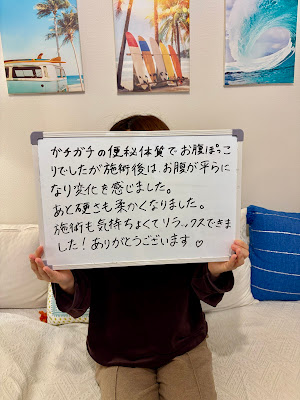 ガチガチの便秘体質でお腹ぽっこ
りでしたが施術後は、お腹が平らに
なり変化を感じました。
あと硬さも柔かくなりました。
施術も気持ちよくてリラックスできま
した！ありがとうございます♡